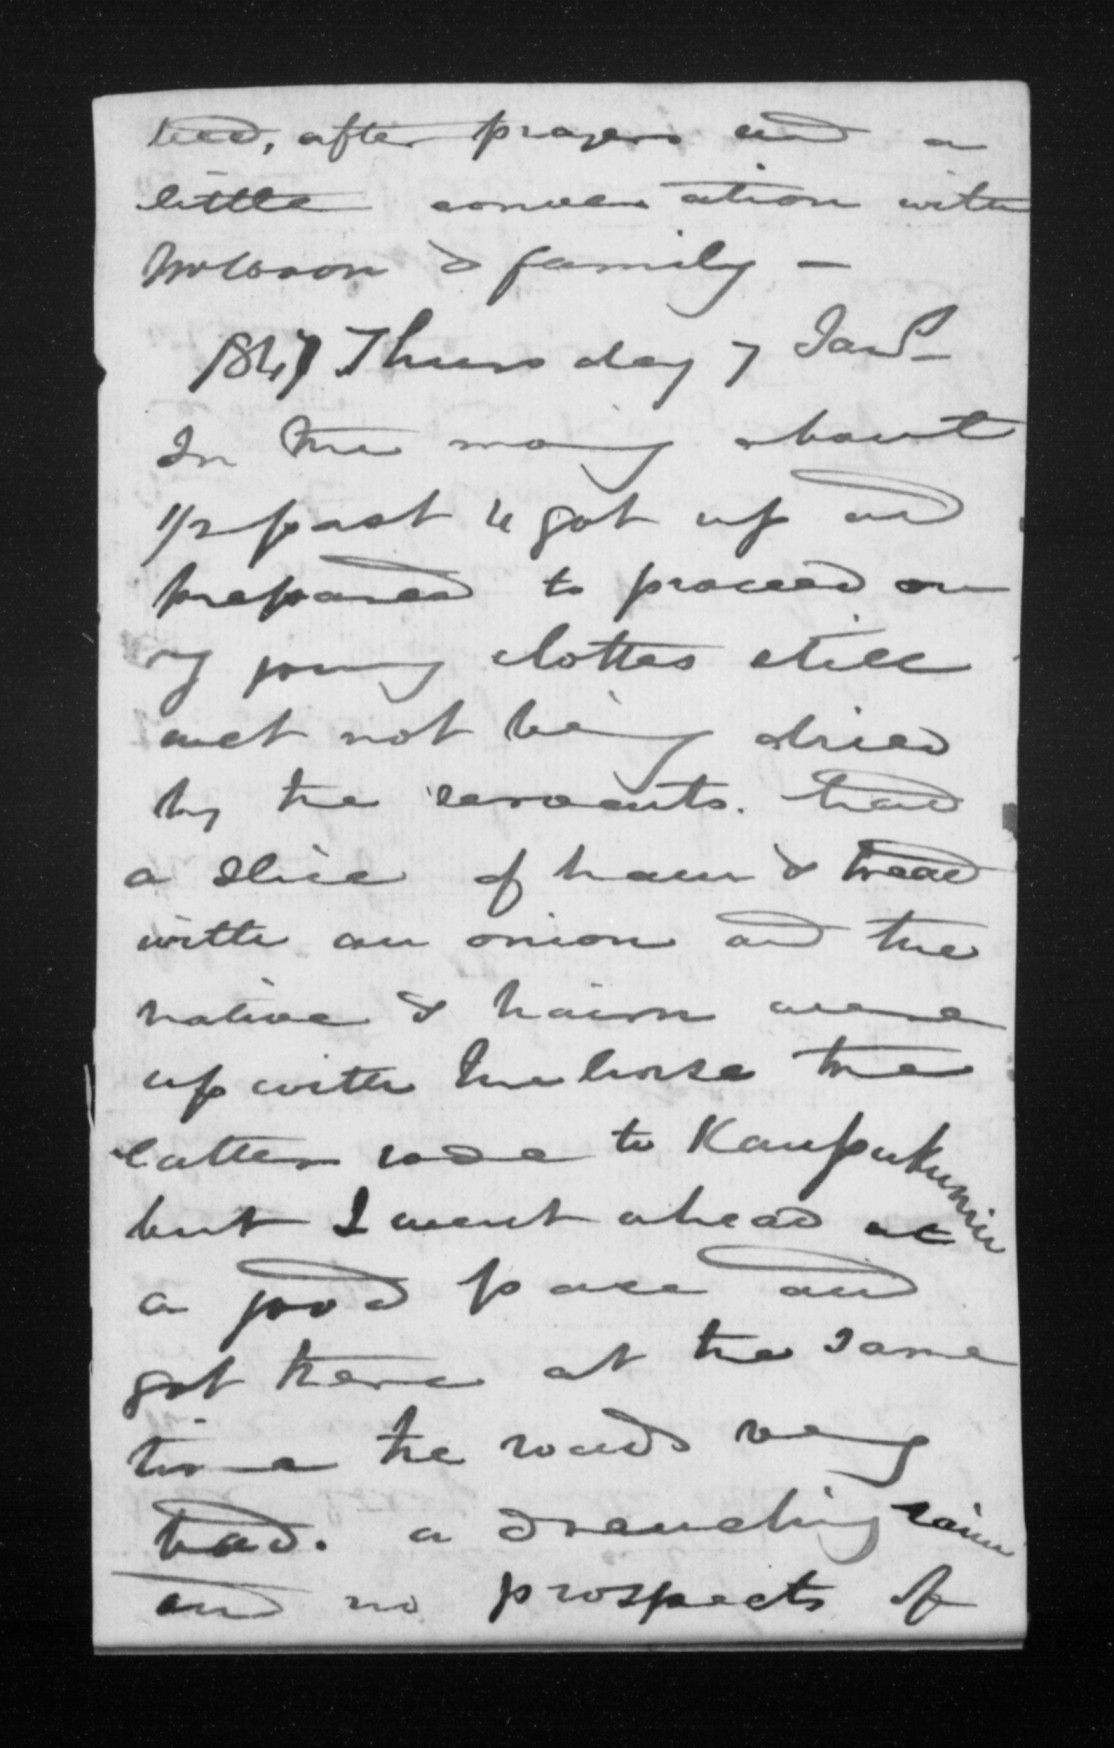 bed, after prayers and a
little conversation with
& family —
1847 Thursday 7 Jany
In the morning about
1/2 past 4 got up and
prepared to proceed on
my journey clothes still
wet not being dried
by the servants. had
a slice of ham & bread
with an onion and the
native & were
up with the horse the
latter rode to
but I went ahead at
a good pace and
got there at the same
time the roads very
bad. a drenching rain
and no prospects of